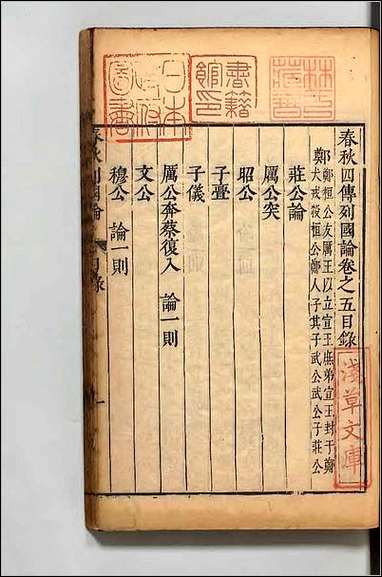 春秋四傳列國論卷之五目錄
鄭
鄭桓公友厲王以立宣王庶弟宣王封于鄭
犬戎殺桓公鄭人子其子武公武公子莊公
莊公論
厲公突
昭公
子亹
子儀
厲公奔蔡復入　論一則
文公
穆公　論一則
林氏藏書
書籍館印
日本政府圖書
淺草文庫